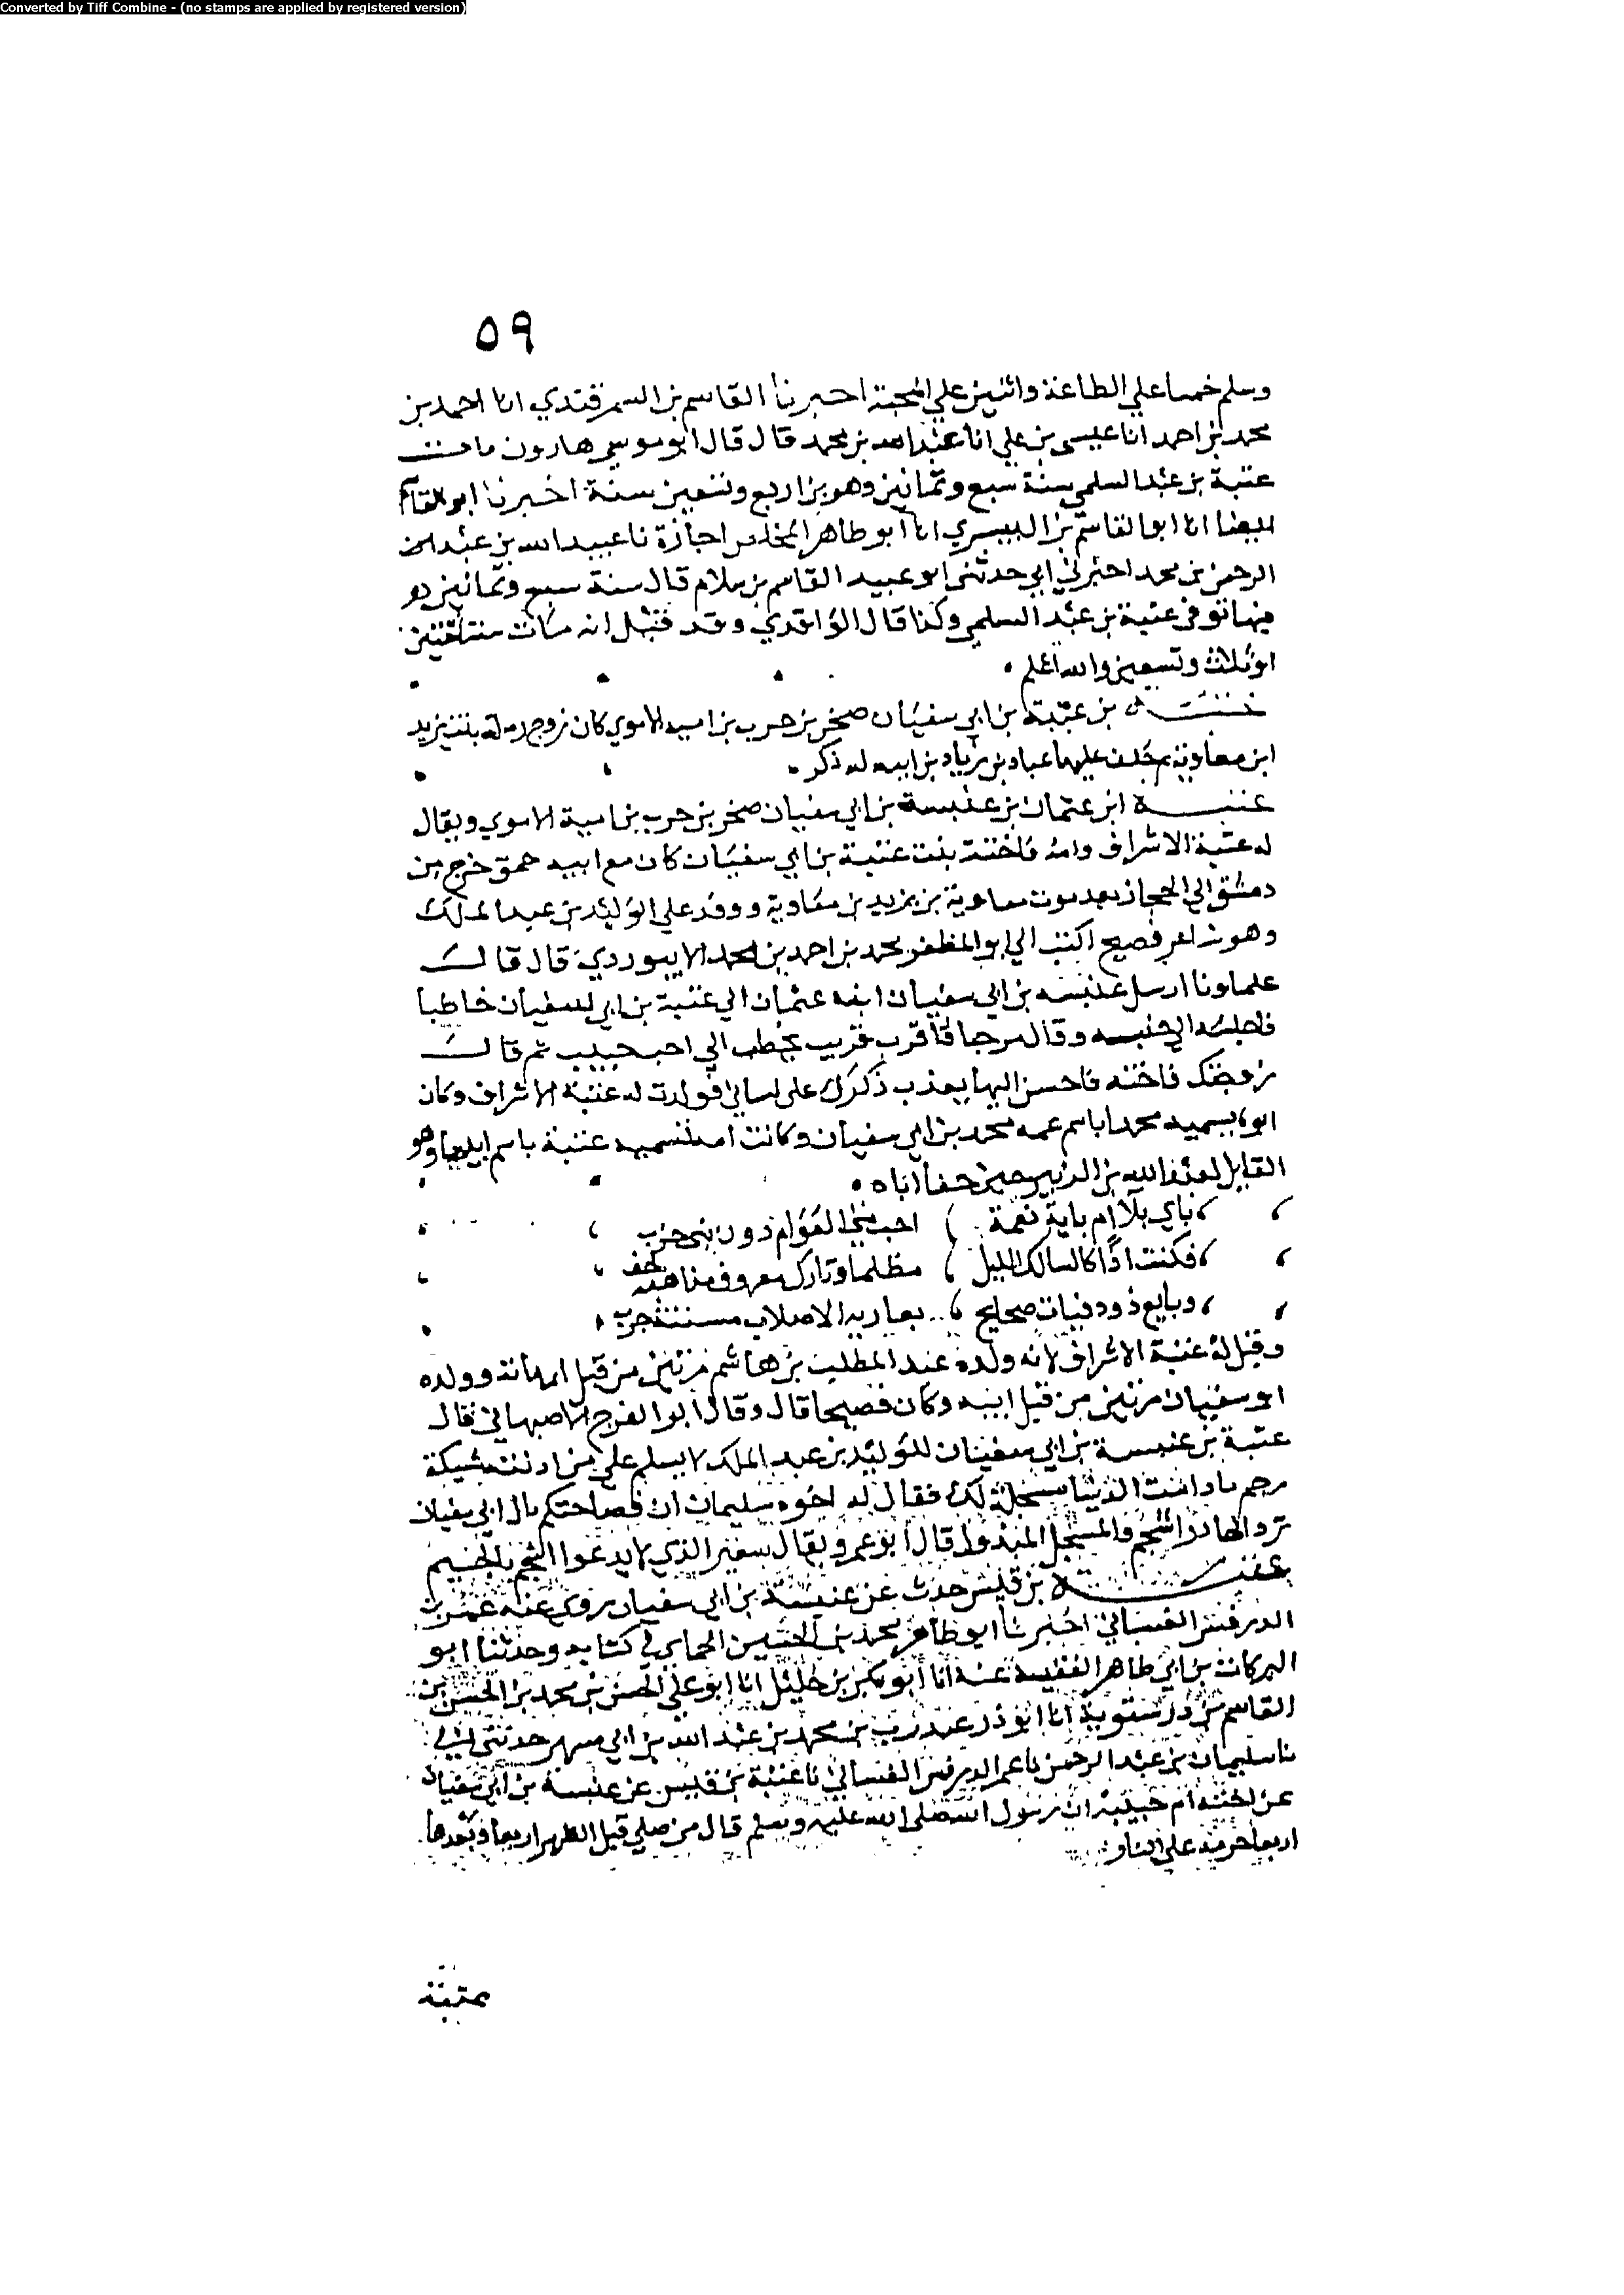 Converted by Tiff Combine - (no stamps are applied by registered version)
٥٩
وسلم خمسا علي الطاعة واثنين علي المحبة احبرنا القاسم بن السمرقندي انا احمد بن
محمد بن احمد انا عيسى بن علي انا عبد الله بن محمد قال قال ابو موسي هارون مات
عتبة بن عبد السلمي سنة سبع وثمانين وهو بن اربع وتسعين سنة اخبرنا ابو القاسم
ايضا انا ابو القاسم بن البسري انا ابو طاهر المخلص اجازة نا عبيد الله بن عبد
الرحمن بن محمد اخبرني ابي حدثني ابو عبيد القاسم بن سلام قال سنة سبع وثمانين
فيها توفي عتبة بن عبد السلمي وكذا قال الواقدي وقد قيل انه مات سنة اثنتين
او ثلاث وتسعين والله اعلم
بن عتبة بن ابي سفيان صخر بن حرب بن امية الاموي كان زوج رملة بنت يزيد
ابن معاوية ثم خلف عليها عباد بن زياد بن ابيه له ذكر
عتبـــة ابن عثمان بن عنبسة بن ابي سفيان صخر بن حرب بن امية الاموي ويقال
له عتبة الاشراف وامه فاختة بنت عتبة بن ابي سفيان كان مع ابيه خرج من
دمشق الي الحجاز بعد موت معاوية بن يزيد بن معاوية ووفد علي الوليد بن عبد الملك
وهو شاعر فصيح اكتب الي ابو المظفر محمد بن احمد بن محمد الابيوردي قال قالـــ
علماونا ارسل عنبسه بن ابي سفيان ابنه عثمان الي عتبة بن ابي سفيان خاطبا
فاجلسه الي جنبه وقال مرحبا قريب خطب الي احب حبيب ثم قالـــ
زوجتك فاخته فاحسن اليها يعذب ذكرك على لساني فولدت له عتبة الاشراف وكان
ابوه يسميه محمدا باسم عمه محمد بن ابي سفيان وكانت امه تسميه عتبة باسم ابيها وهو
القايل لعبد الله بن الزبير حين جفا اباه
باي بلا ام باية نعمة احب بني العوام دون بني حرب
فكنت اذا كالسالك الليل مظلما وتارك معروف
وبايع ذود صحايح الاصلاب
وقيل له عتبة الاشراف لانه ولده عبد المطلب بن هاشم مرتين من قبل امهاته وولده
ابو سفيان مرتين من قبل ابيه وكان فصيحا قال وقال ابو الفرج الاصبهاني قال
عتبة بن عنبسة بن ابي سفيان للوليد بن عبد الملك لا يسلم علي من
رحم ما دامت الدنيا مسجلة لك فقال له اخوه سليمان ان فصاحتكم يال ابي سفيان
ترد والمسجل المبذول قال ابو عمرو يقال سفير الذي لا يدعوا
عتبـــة بن قيس حدث عن عنبسة بن ابي سفيان روى عنه عمر بن
الدرفس الغساني اخبرنا ابو طاهر محمد بن الحسين الحناي في كتابه وحدثنا ابو
البركات بن ابي طاهر الفقيه عنه انا ابو بكر بن خليل انا ابو علي الحسن بن محمد بن الحسن بن
القاسم بن درستويه انا ابو ذر عبد رب بن محمد بن عبد الله بن ابي مسهر حدثني
نا سليمان بن عبد الرحمن نا عمر الدرفس الغساني نا عتبة بن قيس عن عنبسة بن ابي سفيان
عن اخته ام حبيبة ان رسول الله صلى الله عليه وسلم قال من صلي قبل الظهر اربعا وبعدها
اربعا حرمه على النار
عتبة